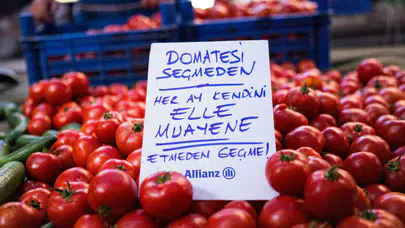 DOMATESİ
SEÇMEDEN
HER AY KENDİNİ
ELLE
MUAYENE
ETMEDEN GEÇME!
Allianz
Allianz